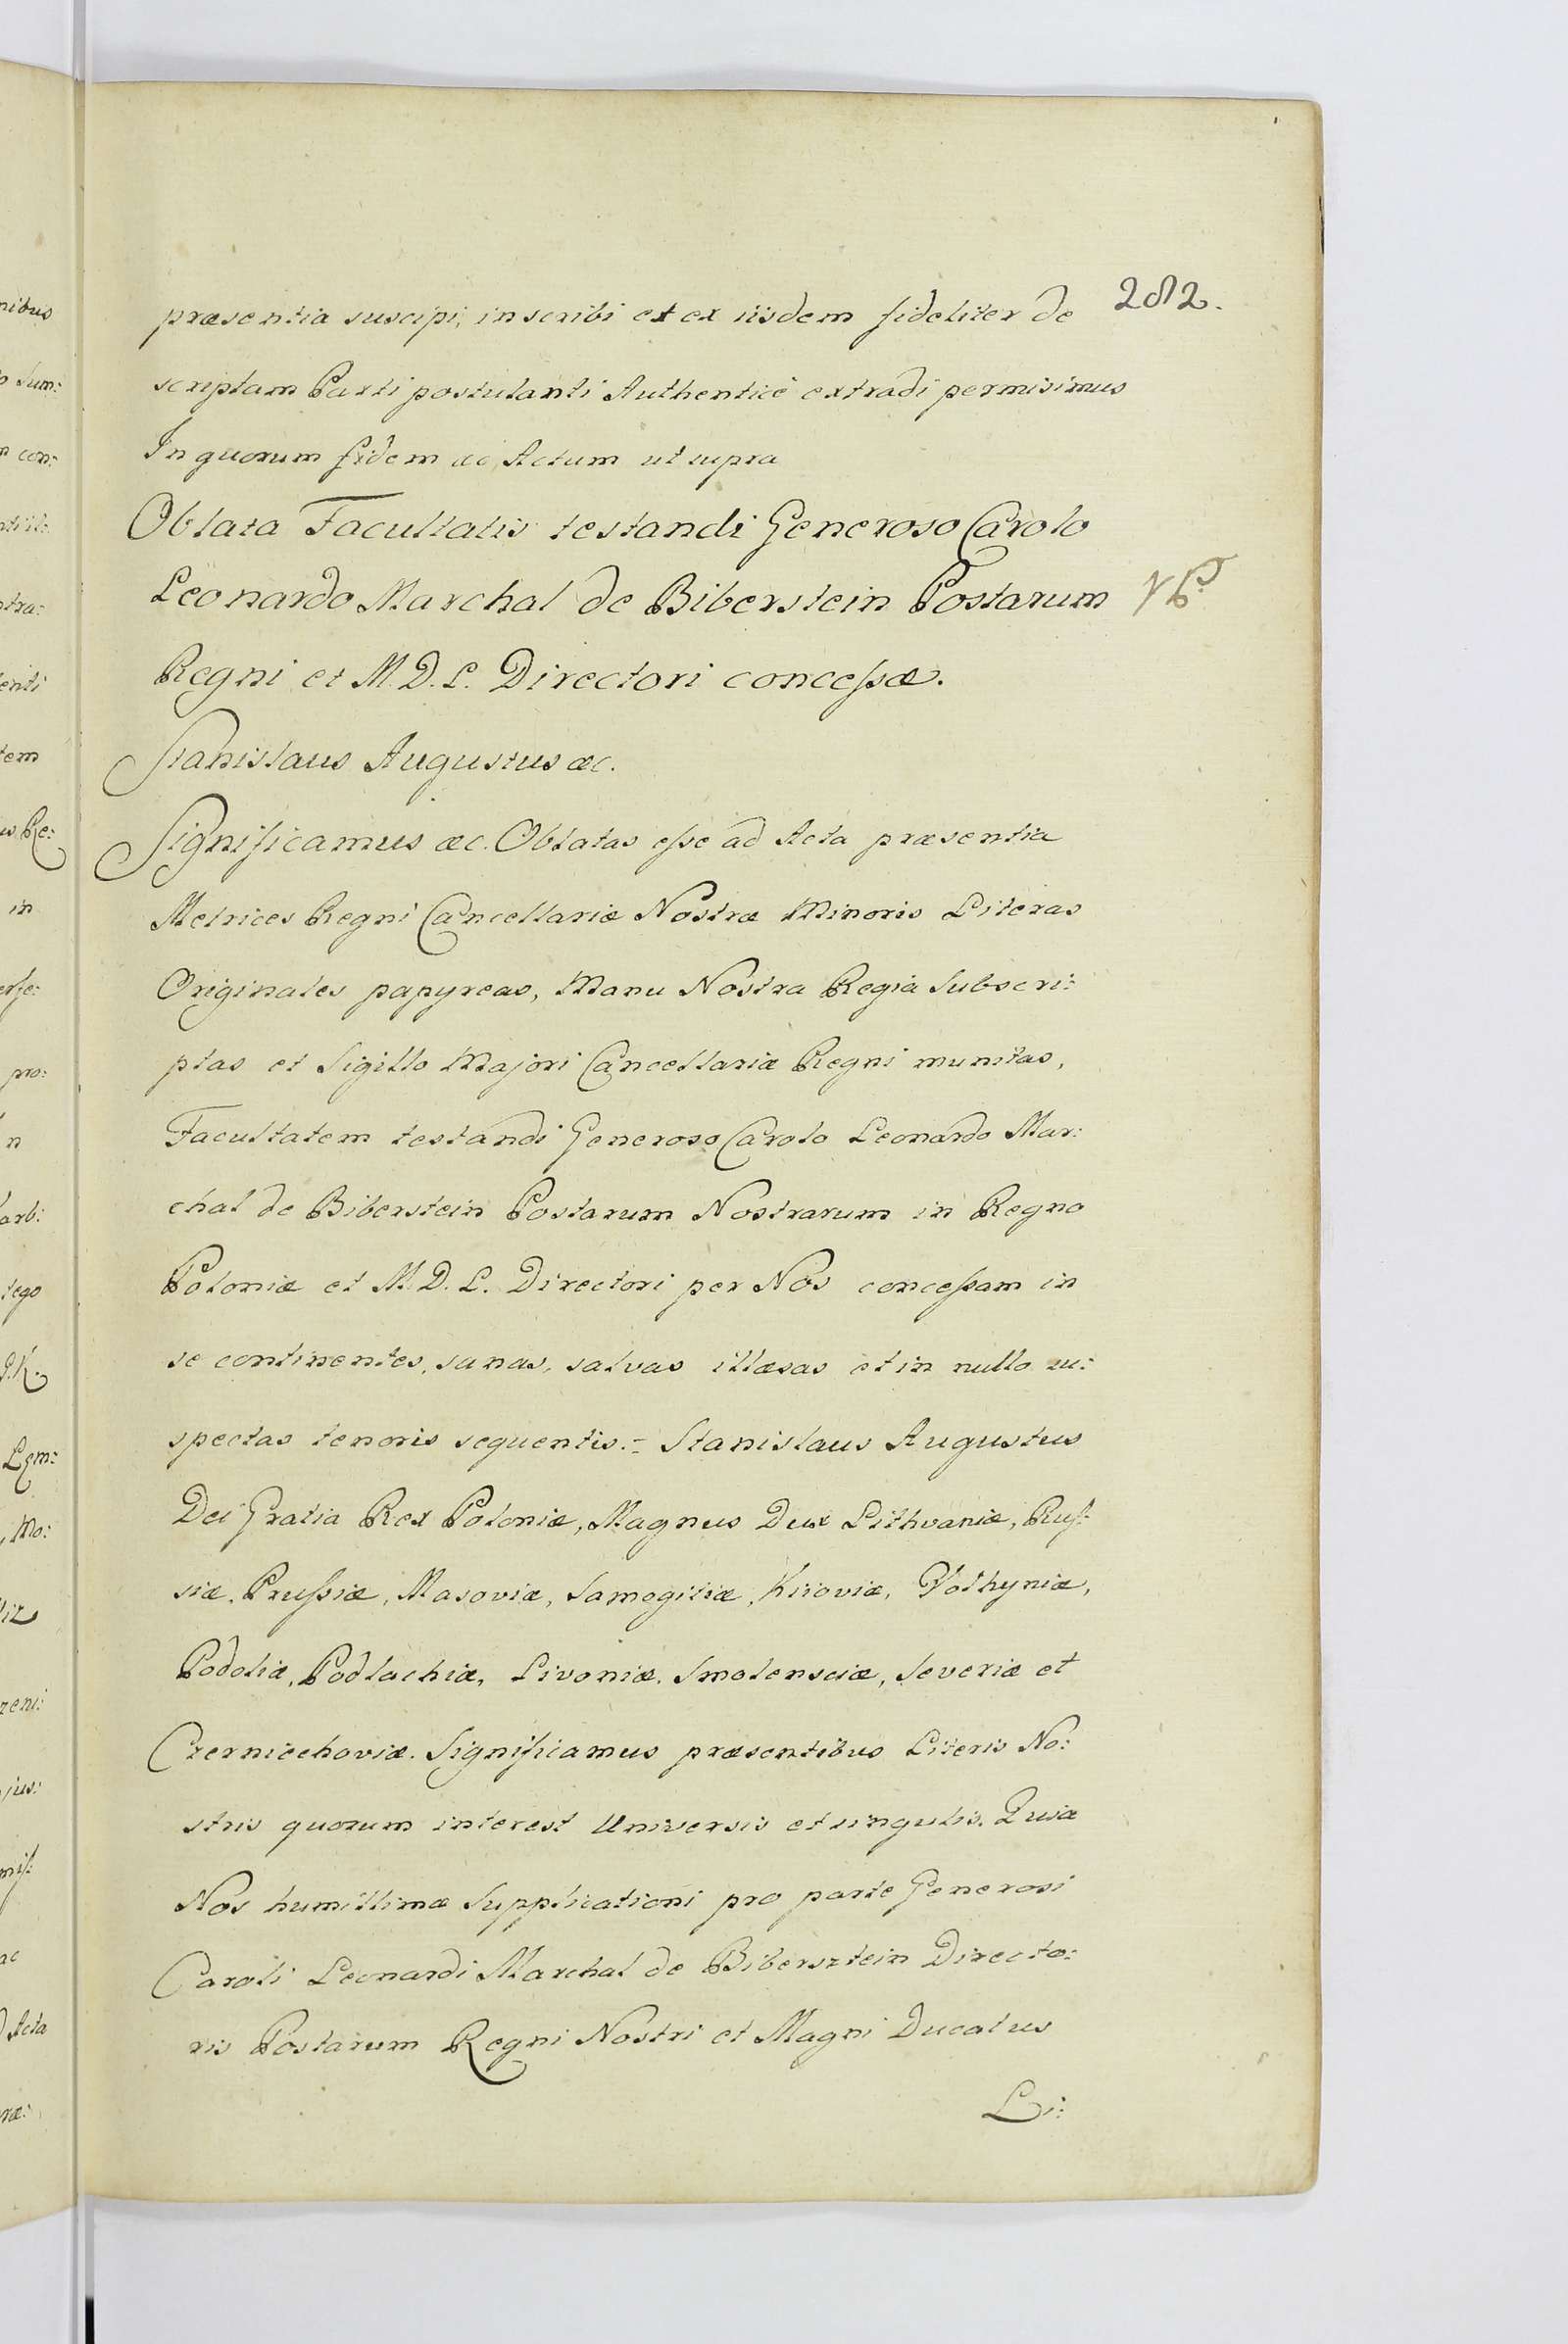 282.
præsentia suscipi, inscribi et ex iisdem fideliter de
scriptam Parti postulanti Authenticè extradi permisimus
In quorum fidem æc Actum ut supra
Oblata Facultatis testandi Generoso Carolo
Leonardo Marchal de Biberstein Postarum
Regni et M. D. L. Directori concessæ.
Stanislaus Augustus æc.
Significamus æc. Oblatas esse ad Acta præsentia
Metrices Regni Cancellariæ Nostræ Minoris Literas
Originales papyreas, Manu Nostra Regia Subscri:
ptas et Sigillo Majori Cancellariæ Regni munitas,
Facultatem testandi Generoso Carolo Leonardo Mar:
chal de Biberstein Postarum Nostrarum in Regno
Poloniæ et M. D. L. Directori per Nos concessam in
se continentes, sanas, salvas illæsas et in nullo su:
spectas tenoris sequentis. = Stanislaus Augustus
Dei Gratia Rex Poloniæ, Magnus Dux Lithvaniæ, Rus:
siæ, Prussiæ, Masoviæ, Samogitiæ, Kiioviæ, Volhyniæ,
Podoliæ, Podlachiæ, Livoniæ, Smolensciæ, Severiæ et
Czerniechoviæ. Significamus præsentibus Literis No:
stris quorum interest Universis et singulis. Quia
Nos humillimæ Supplicationi pro parte Generosi
Caroli Leonardi Marchal de Bibersztein Directo:
ris Postarum Regni Nostri et Magni Ducatus
Li: